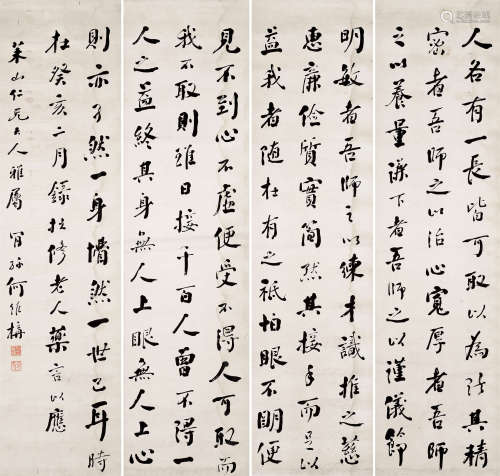 人各有一長皆可取以為法其精
密者吾師之以治心寬厚者吾師
之以養量謙下者吾師之以謹儀節
明敏者吾師之以練才識推之慈
惠廉儉質實簡然其接手而足以
益我者随在有之祗怕眼不明便
見不到心不虛便受不得人可取而
我不取則雖日接千百人曾不得一
人之益終其身無人上眼無人上心
則亦孑然一身懵然一世已耳時
在癸亥二月錄拙修老人藥言以應
山仁兄大人雅屬 孫何維構